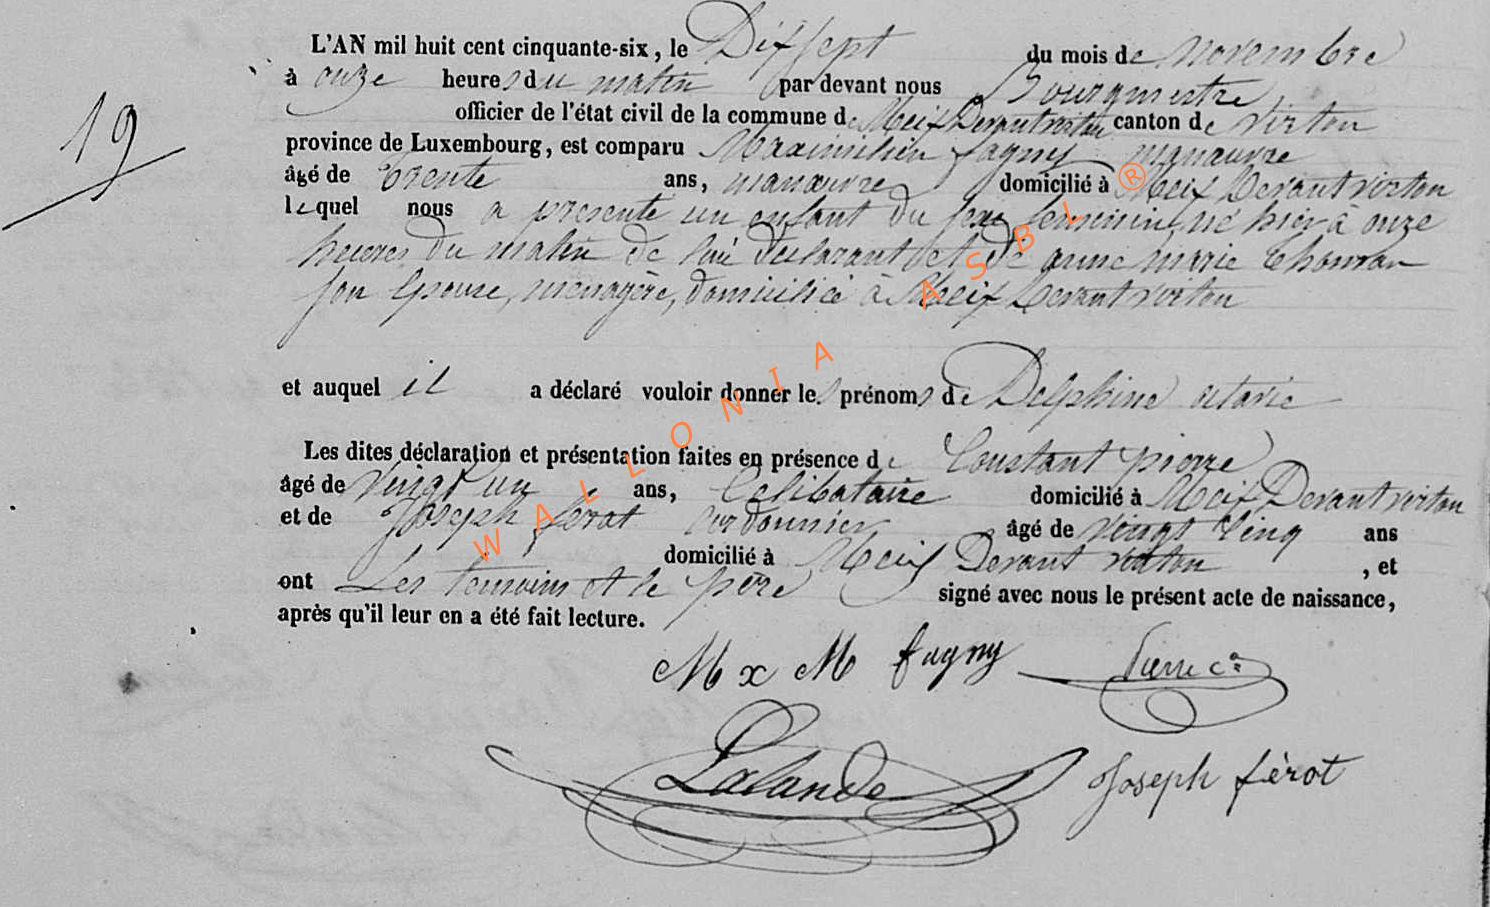 L'AN mil huit cent cinquante-six, le Dixsept du mois de Novembre
à onze heures du matin par devant nous Bourgmestre
officier de l'état civil de la commune de Meix Devant virton canton de virton
19
province de Luxembourg, est comparu Maximilien fagny manœuvre
âgé de trente ans, manœuvre domicilié à Meix Devant virton
lequel nous a présenté un enfant du sexe feminin né hier à onze
heures du matin de lui déclarant et de anne marie
son Epouse, ménagère, domiciliée à Meix Devant virton
et auquel il a déclaré vouloir donner les prénoms de Delphine octavie
Les dites déclaration et présentation faites en présence de Constant pierre
âgé de vingt un ans, Celibataire domicilié à Meix Devant virton
et de Joseph ferot cordonnier âgé de vingt cinq ans
domicilié à Meix Devant virton, et
ont Les temoins et le père signé avec nous le présent acte de naissance,
après qu'il leur en a été fait lecture.
M x M fagny Pierre Ct
Lalande Joseph férot
WALLONIA ASBL ®